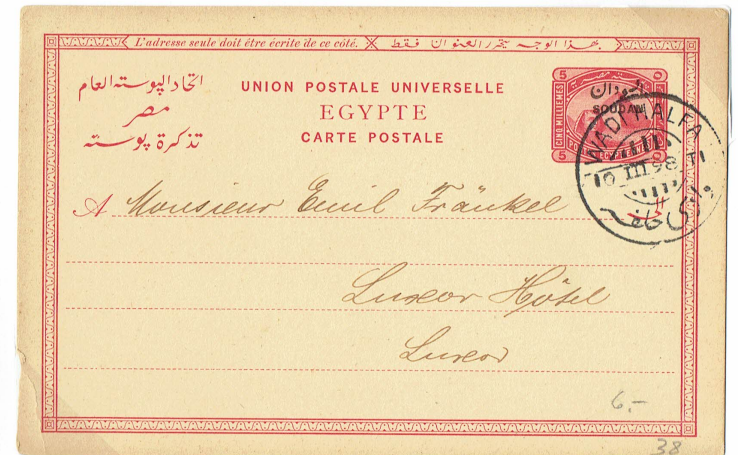 L'adresse seule doit être écrite de ce côté. بهذا الوجه يتحرر العنوان فقط
اتحاد البوسته العام
مصر
تذكرة بوسته
UNION POSTALE UNIVERSELLE
EGYPTE
CARTE POSTALE
5 CINQ MILLIEMES 5
السودان
SOUDAN
WADI HALFA
10 III 98 T1
وادي حلفا
A Monsieur Emil Fränkel
Luxor Hôtel
Luxor
6.-
38